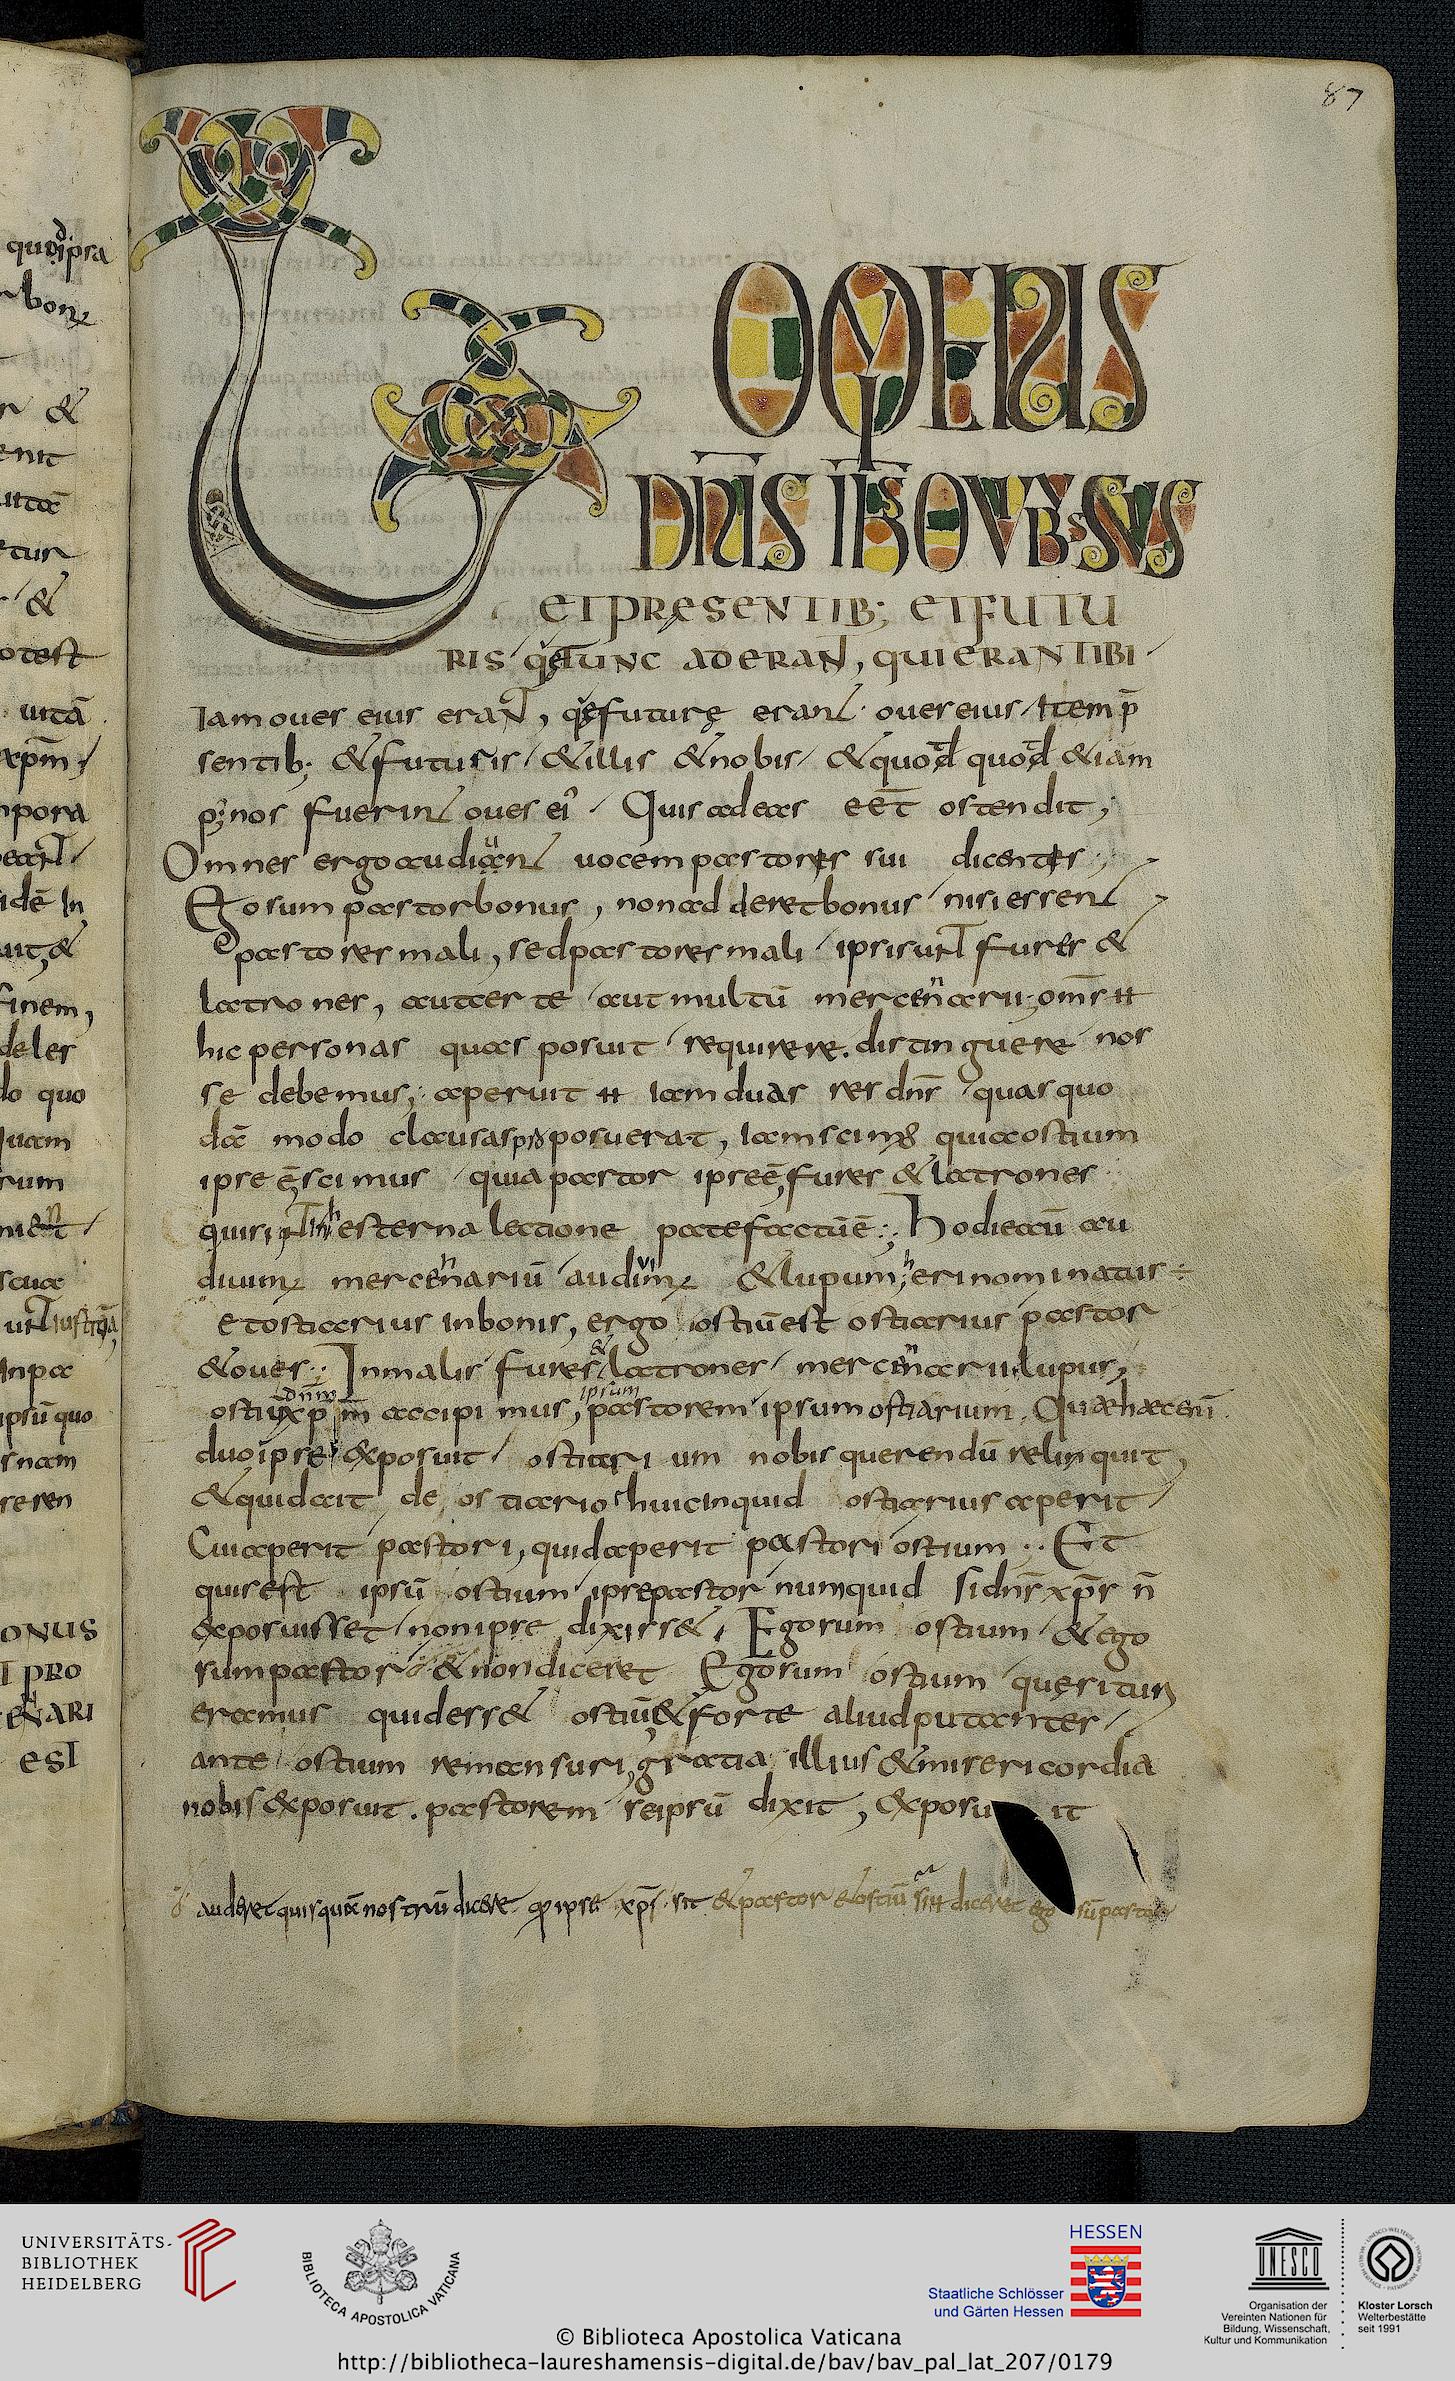 87
LOQUENS
DN̄S IH̄S OVIBUS SUIS
ET PRĘSENTIB; ET FUTU
RIS, QUĘ TUNC ADERANT, QUI ERANT IBI
Iam oues eius erant, quę futurę erant oues eius ītem p̄
sentib; & futuris, & illis & nobis, & quod quod & iam
p; nos fuerint oues eī. Quis ad eas eēt ostendit;
Omnes ergo audiunt uocem pastores sui dicentes;
Ego sum pastor bonus, non adderet bonus nisi essent
pastores mali, sed pastores mali ipsi sunt fures &
latrones, aut certe aut multū mercennarii; om̄s H
hic personas quas posuit requirere. distinguere nos
se debemus; aperuit H iam duas res dn̄s quas quo
dā modo clausas proposuerat, iam scimus quia ostium
ipse ē, scimus quia pastor ipse ē, fures & latrones
qui sint in hesterna lectione patefactū ē; Hodie aū au
diuimus mercennariū audiuimus & lupum; heri nominatus ÷
et ostiarius in bonis, ergo ostiū est ostiarius pastor
& oues; In malis fures & latrones mercennarii lupus;
ostiū dn̄m xp̄m accipimus, pastorem ipsum ostiarium. Quae haec enī
duo ipse exposuit, ostiarium nobis querendū relinquit,
& quid ait de ostiario huic inquid ostiarius aperit
Cui aperit pastori, quid aperit pastori ostium; Et
quis est ipsū ostium ipse pastor numquid si dn̄s xp̄s n̄
exposuisset, non ipse dixiss&, Ego sum ostium & ego
sum pastor & non diceret Ego sum ostium quęritur
eramus quid ess& ostiū & forte aliud putantes
ante ostium remansuri, gratia illius & misericordia
nobis exposuit. pastorem seipsū dixit, exposu it
auderet quisquā nostrū dicere qd ipse xp̄s sit & pastor & ostiū si n̄ diceret ego sū pastor
UNIVERSITÄTS-
BIBLIOTHEK
HEIDELBERG
BIBLIOTECA APOSTOLICA VATICANA
HESSEN
Staatliche Schlösser
und Gärten Hessen
UNESCO
Organisation der
Vereinten Nationen für
Bildung, Wissenschaft,
Kultur und Kommunikation
Kloster Lorsch
Welterbestätte
seit 1991
© Biblioteca Apostolica Vaticana
http://bibliotheca-laureshamensis-digital.de/bav/bav_pal_lat_207/0179